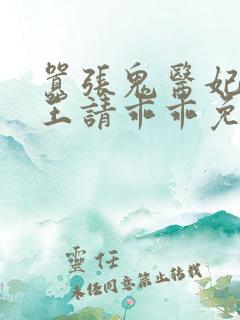 囂張鬼醫妃
王請乖乖免
靈任
未經同意禁止轉載